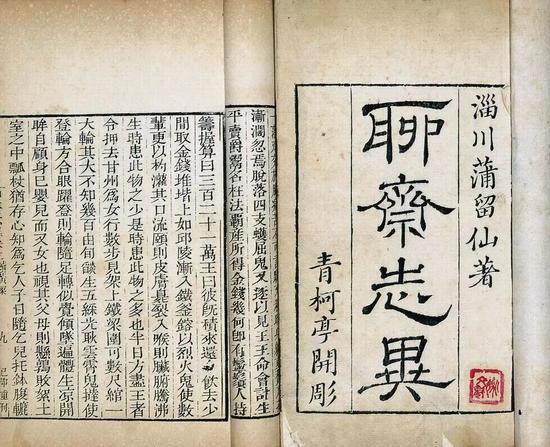 淄川蒲留仙著
聊齋志異
青柯亭開彫
漸瀾忽焉脫落四支蠖屈鬼又逐以見王王命會計生
平賣爵鬻名枉法霸產所得金錢幾何卽有鬚人持
籌握算曰三百二十一萬王曰彼旣積來還令飲去少
間取金錢堆堦上如邱陵漸入鐵釜鎔以烈火鬼使數
輩更以杓灌其口流頤則皮膚臭裂入喉則臟腑騰沸
生時患此物之少是時患此物之多也半日方盡王者
令押去甘州爲女行數步見架上鐵梁圍可數尺綰一
大輪其大不知幾百由旬燄生五綵光耿雲霄鬼撻使
登輪方合眼躍登則輪隨足轉似覺傾墜遍體生涼開
眸自顧身已嬰兒而又女也視其父母則懸鶉敗絮土
室之中瓢杖猶存心知爲乞人子日隨乞兒托鉢腹轆
九